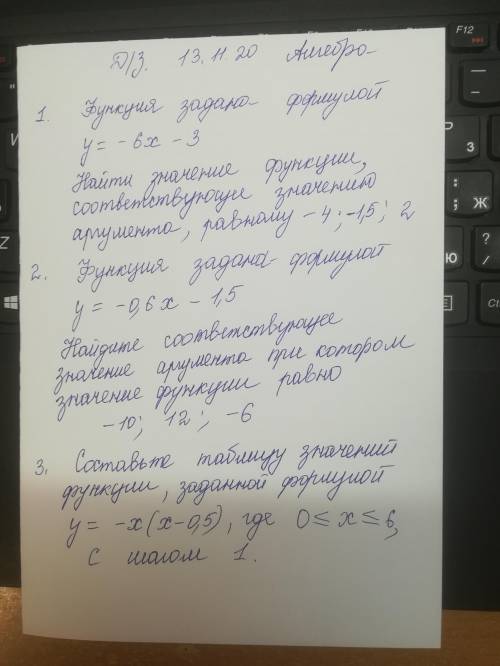 Д/З. 13.11.20 Алгебра
1. Функция задана формулой
y = -6x - 3
Найти значение функции,
соответствующее значению
аргумента, равному -4; -1,5; 2
2. Функция задана формулой
y = -0,6x - 1,5
Найдите соответствующее
значение аргумента при котором
значение функции равно
-10; 12; -6
3. Составьте таблицу значений
функции, заданной формулой
y = -x(x-0,5), где 0 ≤ x ≤ 6,
с шагом 1.
F12